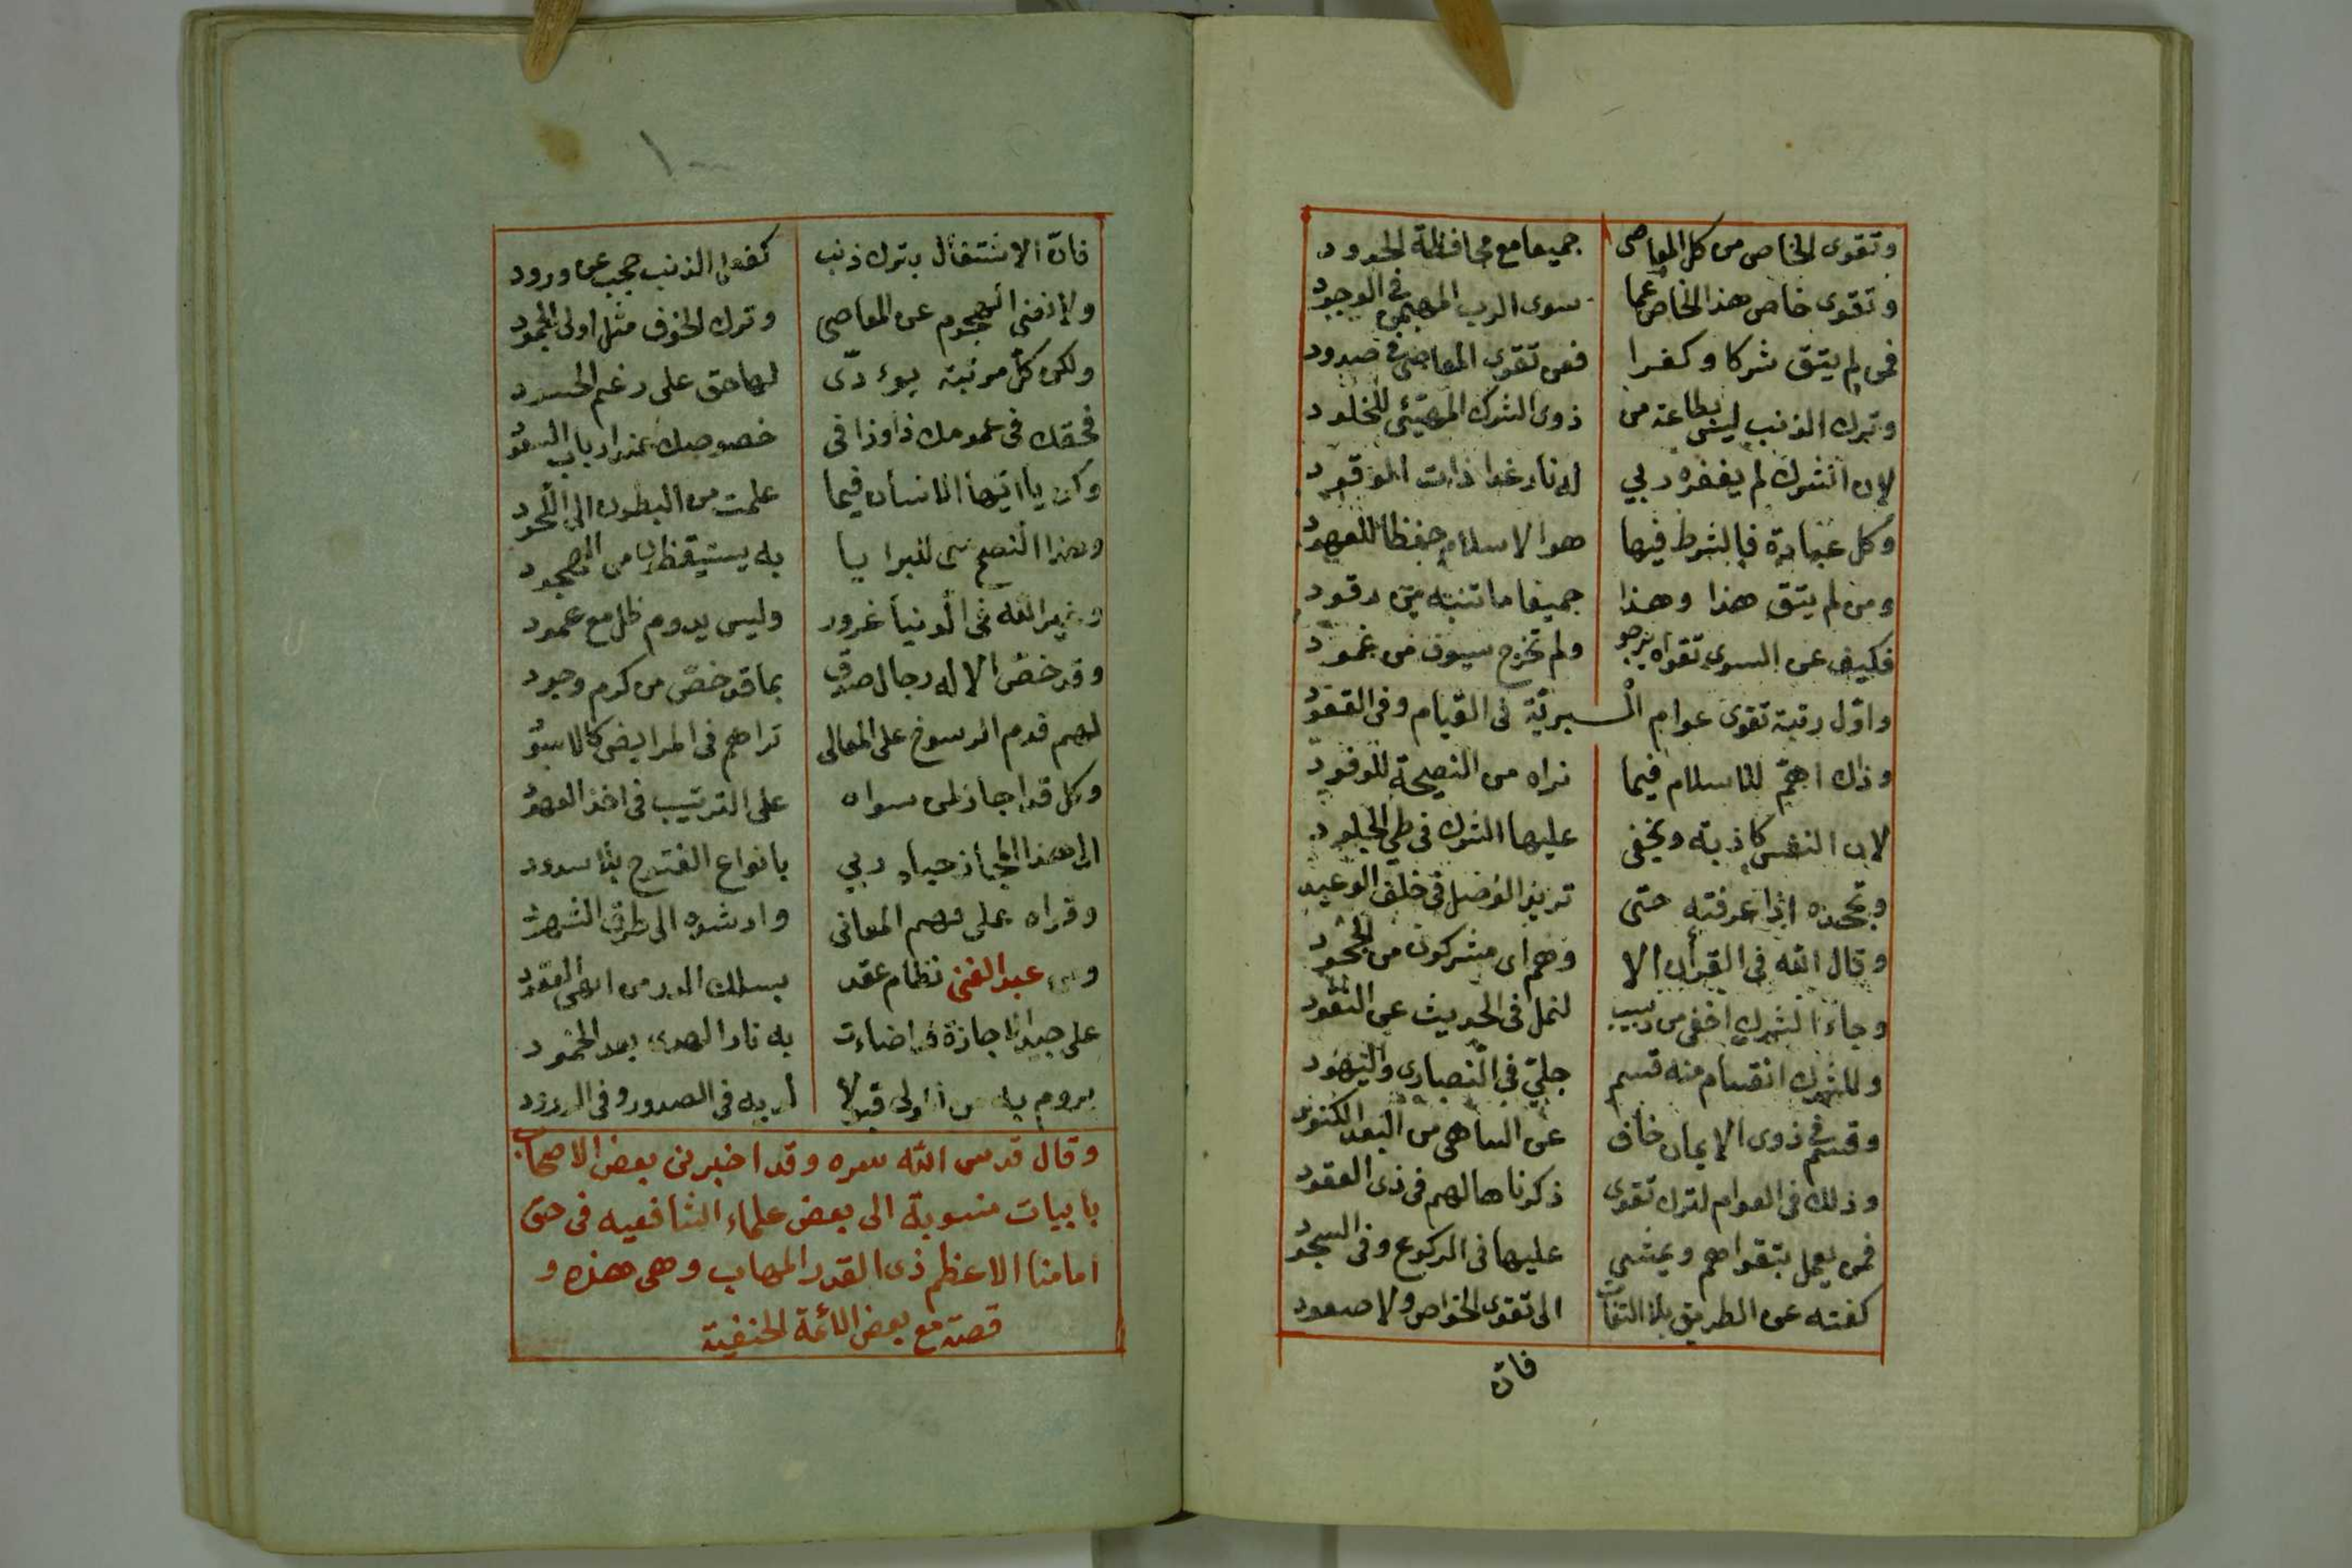 وتقوى الخاص من كل المعاصى جميعا مع محافظة الحدود
وتقوى خاص هذا الخاص عما سوى الرب المهيمن فى الوجود
فمن لم يتق شركا وكفرا فعن تقوى المعاصى فى صدود
وترك الذنب ليس بطاعة من ذوى الشرك المهيئ للخلود
لان الشرك لم يغفره ربي له نار غدا ذات الوقود
وكل عبادة فالشرط فيها هو الاسلام حفظا للعهود
ومن لم يتق هذا وهذا جميعا ما تنبه من رقود
فكيف عن السوى تقواه يرجو ولم تخرج سيوف من غمود
واول رتبة تقوى عوام البرية فى القيام وفى القعود
وذاك اهم للاسلام فيما نراه من النصيحة للوفود
لان النفس كاذبة ويخفى عليها الشرك فى طي الجلود
وتجحده اذا عرفته حتى تريد الفضل فى خلف الوعيد
وقال الله فى القرآن الا وهم اى مشركون من الجحود
وجاء الشرك اخفى من دبيب لنمل فى الحديث عن النقود
وللشرك انقسام منه قسم جلي فى النصارى واليهود
وقسم فى ذوى الايمان خاف عن الساهى من البعد الكنود
وذلك فى العوام لترك تقوى ذكرناها لهم فى ذى العقود
فمن يعمل بتقواهم ويمشى عليها فى الركوع وفى السجود
كفته عن الطريق بلا التفات الى تقوى الخواص ولا صعود
فان
فان الاشتغال بترك ذنب كفعل الذنب حجب عن ورود
عن المعاصى وترك الخوف مثل اولى الجمود
ولكن كل مرتبة يؤدى لها حق على رغم الحسود
فحقك فى عمومك ذا وذا فى خصوصك عند ارباب السعود
وكن يا ايها الانسان فيما علمت من البطون الى اللحود
وهذا النصح منى للبرايا به يستيقظون من الهجود
وغير الله فى الدنيا غرور وليس يدوم ظل مع عمود
وقد خص الاله رجال صدق بما قد خص من كرم وجود
لهم قدم الرسوخ على المعالى تراهم فى المرابض كالاسود
وكل قد اجاز لمن سواه على الترتيب فى اخذ العهود
الى هذا المجاز حباه ربي بانواع الفتوح بلا سدود
وقراه على فهم المعانى وارشده الى طرق الشهود
ومن عبد الغنى نظام عقد بسلك الدر من ابهى العقود
على جيد اجازة قد اضاءت به نار الهدى بعد الخمود
يروم به من المولى قبولا
وقال قدس الله سره وقد اخبرنى بعض الاصحاب
بابيات منسوبة الى بعض علماء الشافعيه فى حق
امامنا الاعظم ذى القدر المهاب وهى هذه و
قصته مع بعض الائمة الحنفية